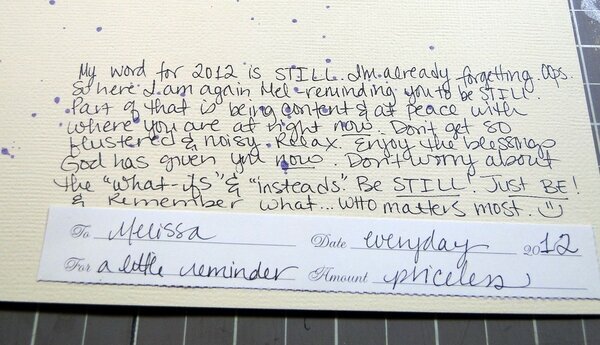 My word for 2012 is STILL. I'm already forgetting. Oops.
So here I am again Mel-reminding you to be STILL.
Part of that is being content & at peace with
where you are at right now. Don't get so
flustered & noisy. Relax. Enjoy the blessings
God has given you now. Don't worry about
the "what-ifs" & "insteads." Be STILL. Just BE!
& Remember what... WHO matters most. :)
To Melissa Date everyday 2012
For a little reminder Amount priceless